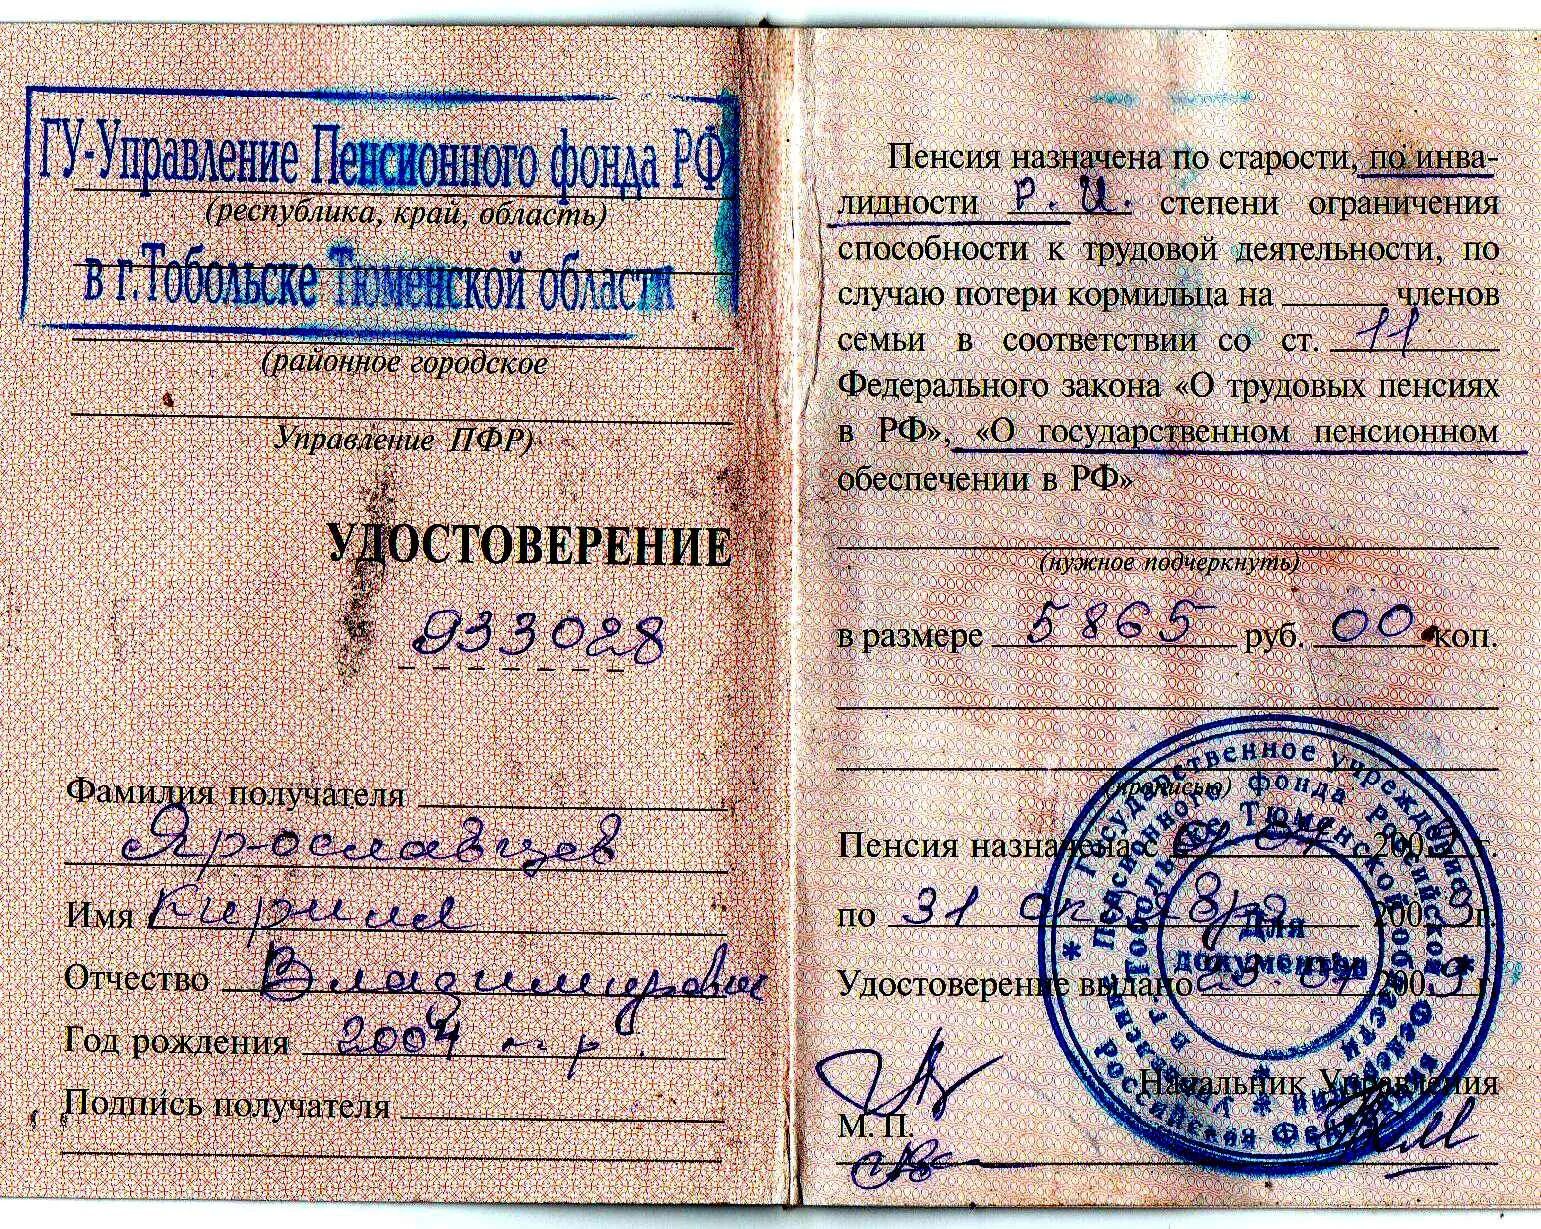 ГУ-Управление Пенсионного фонда РФ
(республика, край, область)
в г.Тобольске Тюменской области
(районное городское
Управление ПФР)
УДОСТОВЕРЕНИЕ
933028
Фамилия получателя
Ярославцев
Имя Кирилл
Отчество Владимирович
Год рождения 2004 г.р.
Подпись получателя
Пенсия назначена по старости, по инва-
лидности Р. И. степени ограничения
способности к трудовой деятельности, по
случаю потери кормильца на членов
семьи в соответствии со ст. 11
Федерального закона «О трудовых пенсиях
в РФ», «О государственном пенсионном
обеспечении в РФ»
(нужное подчеркнуть)
в размере 5865 руб. 00 коп.
(прописью)
Пенсия назначена с 200 г.
по 31 200 г.
Удостоверение выдано 200 г.
Начальник Управления
М. П.
Государственное учреждение
Пенсионного фонда Российской Федерации
в г. Тобольске Тюменской области
Для
документов